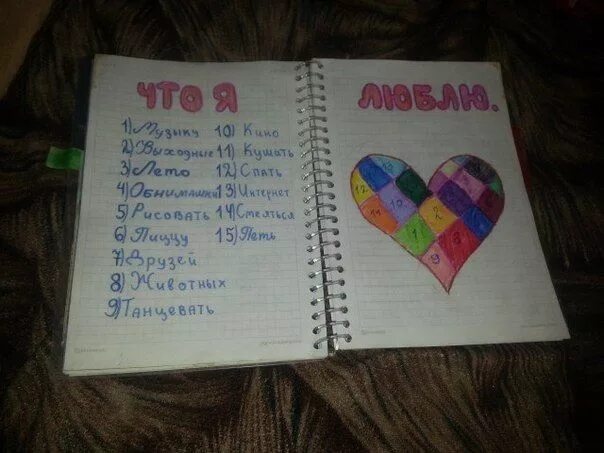 ЧТО Я
ЛЮБЛЮ.
1) Музыку
2) Выходные
3) Лето
4) Обнимашки
5) Рисовать
6) Пиццу
7) Друзей
8) Животных
9) Танцевать
10) Кино
11) Кушать
12) Спать
13) Интернет
14) Смеяться
15) Петь
12
13
11
10
2
1
8
9